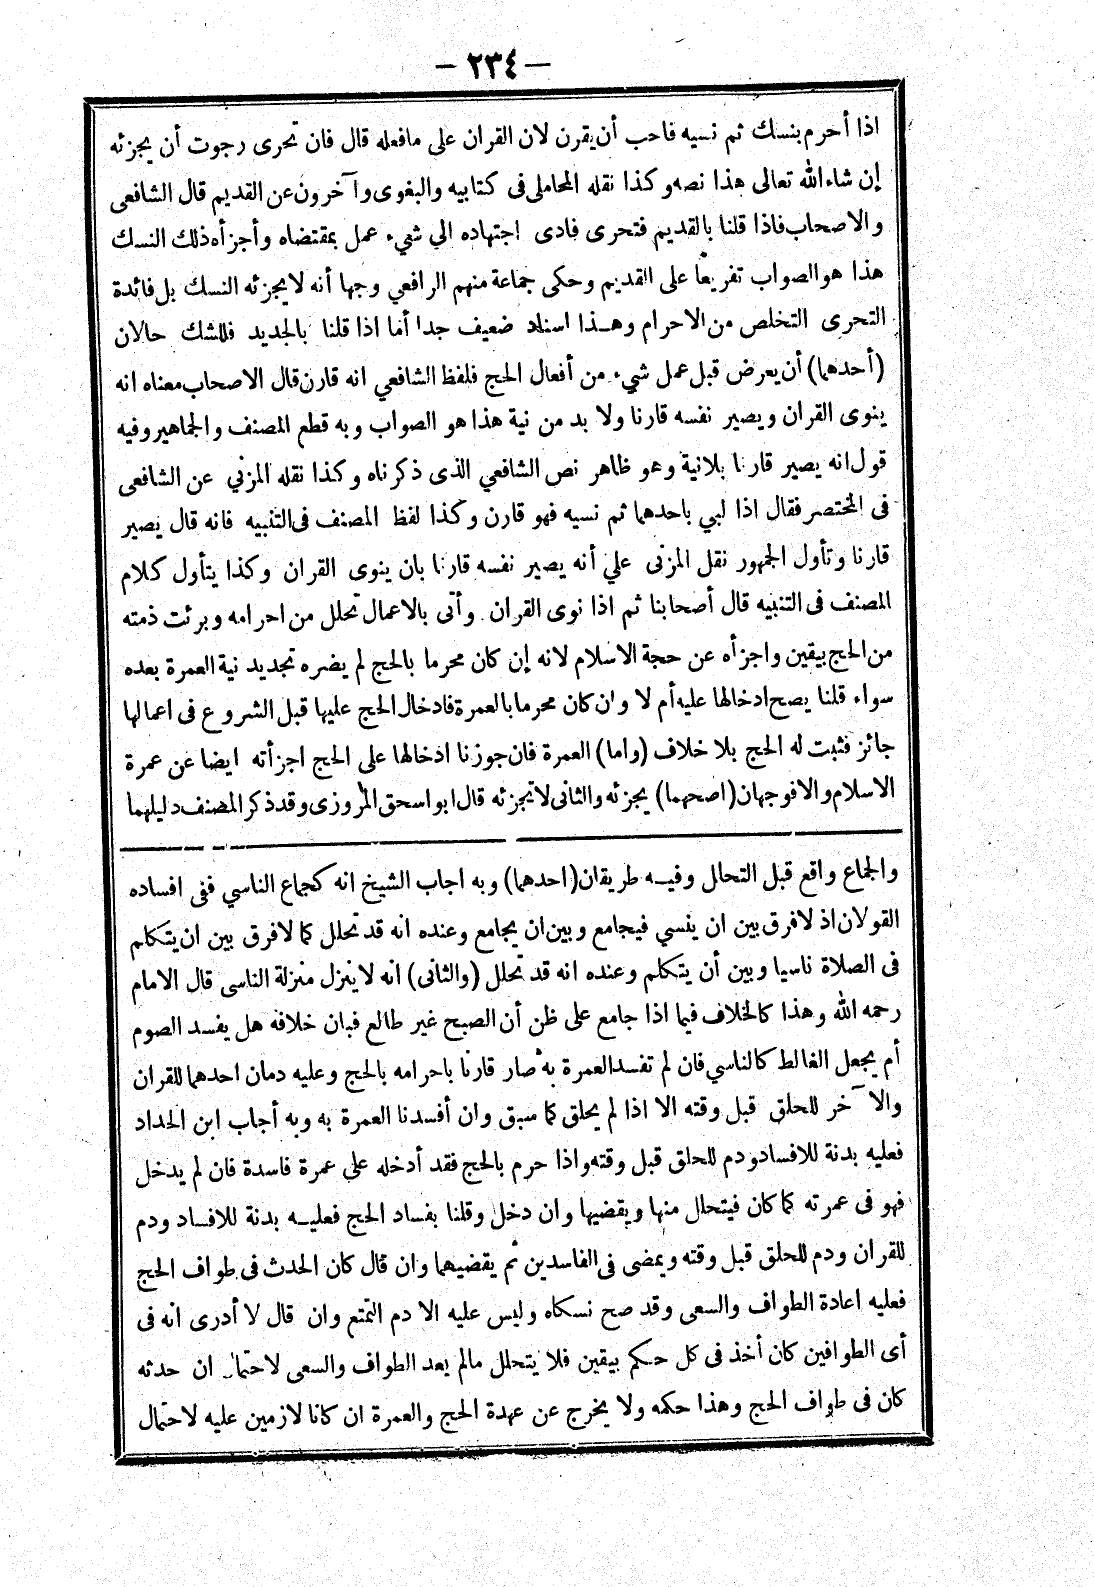 — ٢٣٤ —
اذا أحرم بنسك ثم نسيه فاحب أن يقرن لان القران على مافعله قال فان تحرى رجوت أن يجزئه
إن شاء الله تعالى هذا نصه وكذا نقله المحاملى فى كتابيه والبغوى وآخرون عن القديم قال الشافعى
والاصحاب فاذا قلنا بالقديم فتحرى فادى اجتهاده الي شيء عمل بمقتضاه وأجزأه ذلك النسك
هذا هو الصواب تفريعا على القديم وحكى جماعة منهم الرافعي وجها أنه لا يجزئه النسك بل فائدة
التحرى التخلص من الاحرام وهـذا اسناد ضعيف جدا أما اذا قلنا بالجديد فللشك حالان
(أحدهما) أن يعرض قبل عمل شيء من أفعال الحج فلفظ الشافعي انه قارن قال الاصحاب معناه انه
ينوى القران ويصير نفسه قارنا ولا بد من نية هذا هو الصواب وبه قطع المصنف والجماهير وفيه
قول انه يصير قارنا بلانية وهو ظاهر نص الشافعي الذى ذكرناه وكذا نقله المزني عن الشافعى
فى المختصر فقال اذا لبي باحدهما ثم نسيه فهو قارن وكذا لفظ المصنف فى التنبيه فانه قال يصير
قارنا وتأول الجمهور نقل المزنى علي أنه يصير نفسه قارنا بان ينوى القران وكذا يتأول كلام
المصنف فى التنبيه قال أصحابنا ثم اذا نوى القران وأتى بالاعمال تحلل من احرامه وبرئت ذمته
من الحج بيقين واجزأه عن حجة الاسلام لانه إن كان محرما بالحج لم يضره تجديد نية العمرة بعده
سواء قلنا يصح ادخالها عليه أم لا وان كان محرما بالعمرة فادخال الحج عليها قبل الشروع فى اعمالها
جائز فثبت له الحج بلا خلاف (واما) العمرة فان جوزنا ادخالها على الحج اجزأته ايضا عن عمرة
الاسلام والا فوجهان (اصحهما) يجزئه والثانى لا تجزئه قال ابو اسحق المروزى وقد ذكر المصنف دليلهما
والجماع واقع قبل التحالل وفيـه طريقان (احدهما) وبه اجاب الشيخ انه كجماع الناسي ففى افساده
القولان اذ لا فرق بين ان ينسي فيجامع وبين ان يجامع وعنده انه قد تحلل كما لا فرق بين ان يتكلم
فى الصلاة ناسيا وبين أن يتكلم وعنده انه قد تحلل (والثانى) انه لا ينزل منزلة الناسى قال الامام
رحمه الله وهذا كالخلاف فيما اذا جامع على ظن أن الصبح غير طالع فبان خلافه هل يفسد الصوم
أم يجعل الغالط كالناسي فان لم تفسد العمرة به صار قارنا باحرامه بالحج وعليه دمان احدهما للقران
والآخر للحلق قبل وقته الا اذا لم يحلق كما سبق وان أفسدنا العمرة به وبه أجاب ابن الحداد
فعليه بدنة للافساد ودم للحلق قبل وقته واذا حرم بالحج فقد أدخله علي عمرة فاسدة فان لم يدخل
فهو فى عمرته كما كان فيتحال منها ويقضيها وان دخل وقلنا بفساد الحج فعليـه بدنة للافساد ودم
للقران ودم للحلق قبل وقته ويمضى فى الفاسدين ثم يقضيهما وان قال كان الحدث فى طواف الحج
فعليه اعادة الطواف والسعى وقد صح نسكاه وليس عليه الا دم التمتع وان قال لا أدرى انه فى
أى الطوافين كان أخذ فى كل حكم بيقين فلا يتحلل مالم يعد الطواف والسعى لاحتمال ان حدثه
كان فى طواف الحج وهذا حكمه ولا يخرج عن عهدة الحج والعمرة ان كانا لازمين عليه لاحتمال